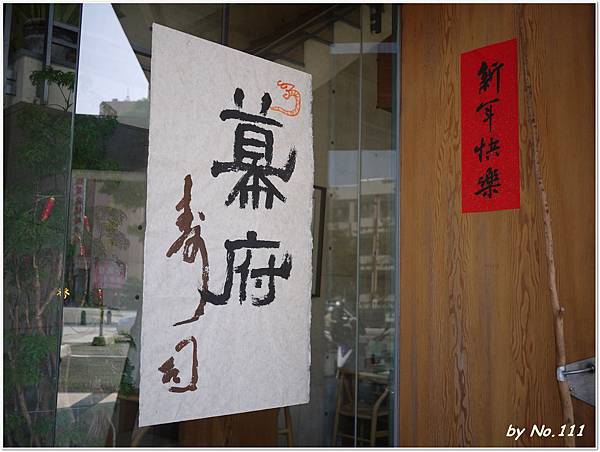 幕府
壽司
新年快樂
by No.111